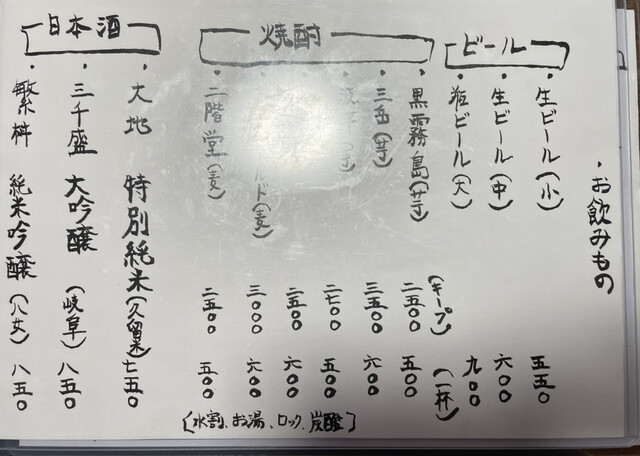 ・お飲みもの
ビール
・生ビール(小) 五五〇
・生ビール(中) 六〇〇
・瓶ビール(大) 九〇〇
焼酎
(キープ) (一杯)
・黒霧島(芋) 二五〇〇 五〇〇
・三岳(芋) 三五〇〇 六〇〇
二七〇〇 五〇〇
二五〇〇 六〇〇
ルド(麦) 三〇〇〇 六〇〇
・二階堂(麦) 二五〇〇 五〇〇
[水割、お湯、ロック、炭酸]
日本酒
・大地 特別純米(久留米) 七五〇
・三千盛 大吟醸(岐阜) 八五〇
・繁桝 純米吟醸(八女) 八五〇